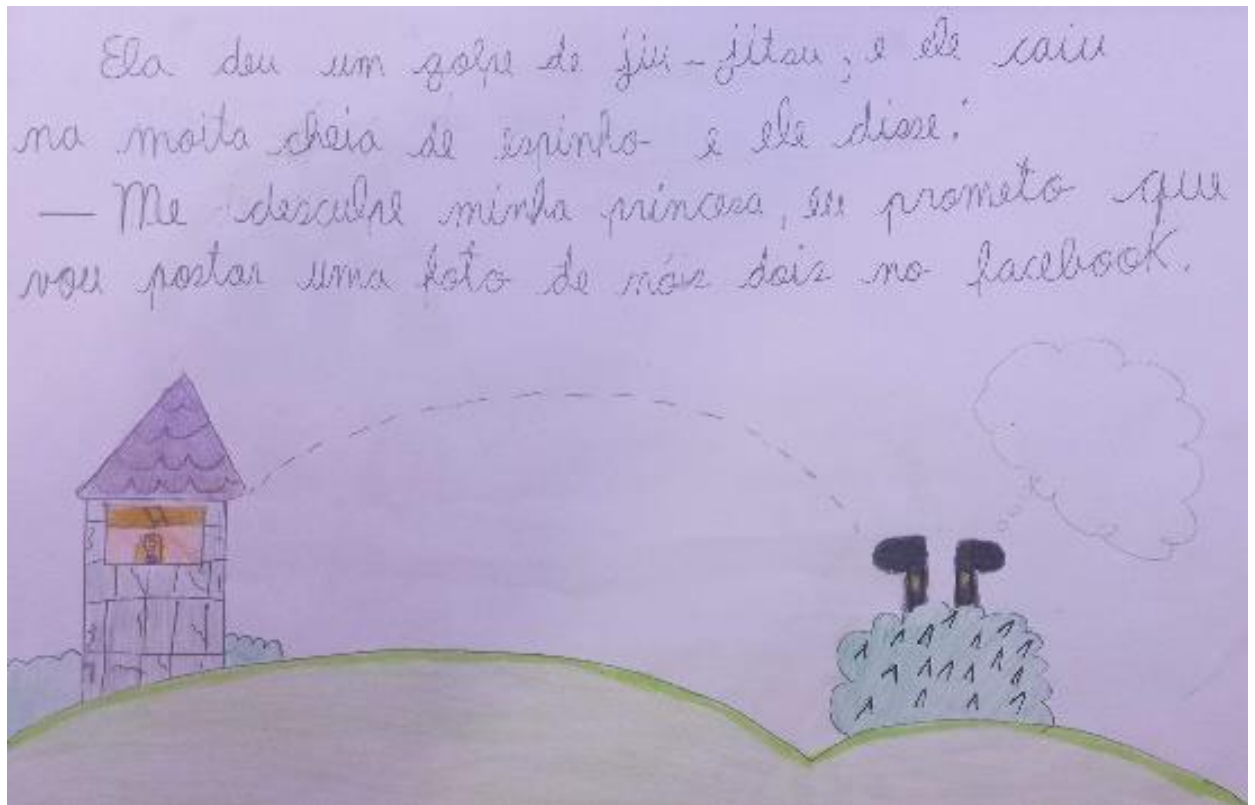 Ela deu um golpe de jiu-jitsu, e ele caiu
na moita cheia de espinho e ele disse:
— Me desculpe minha princesa, eu prometo que
vou postar uma foto de nóis dois no facebook.